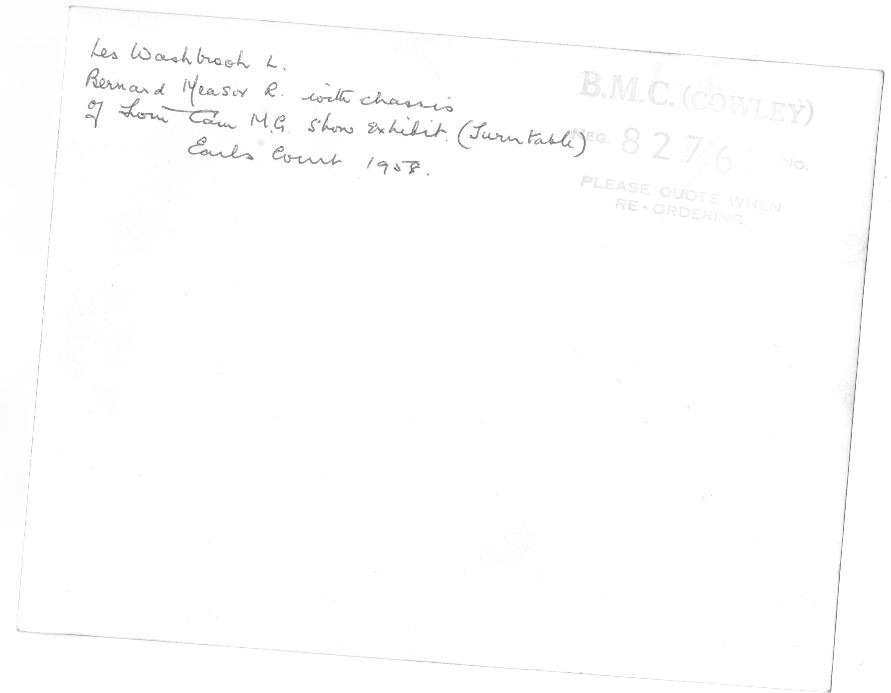 Les Washbrook L.
Bernard Measor R. with chassis
of Twin Cam M.G. Show exhibit. (Turntable)
Earls Court 1958.
B.M.C. (COWLEY)
NEG. 8276 No.
PLEASE QUOTE WHEN
RE-ORDERING.